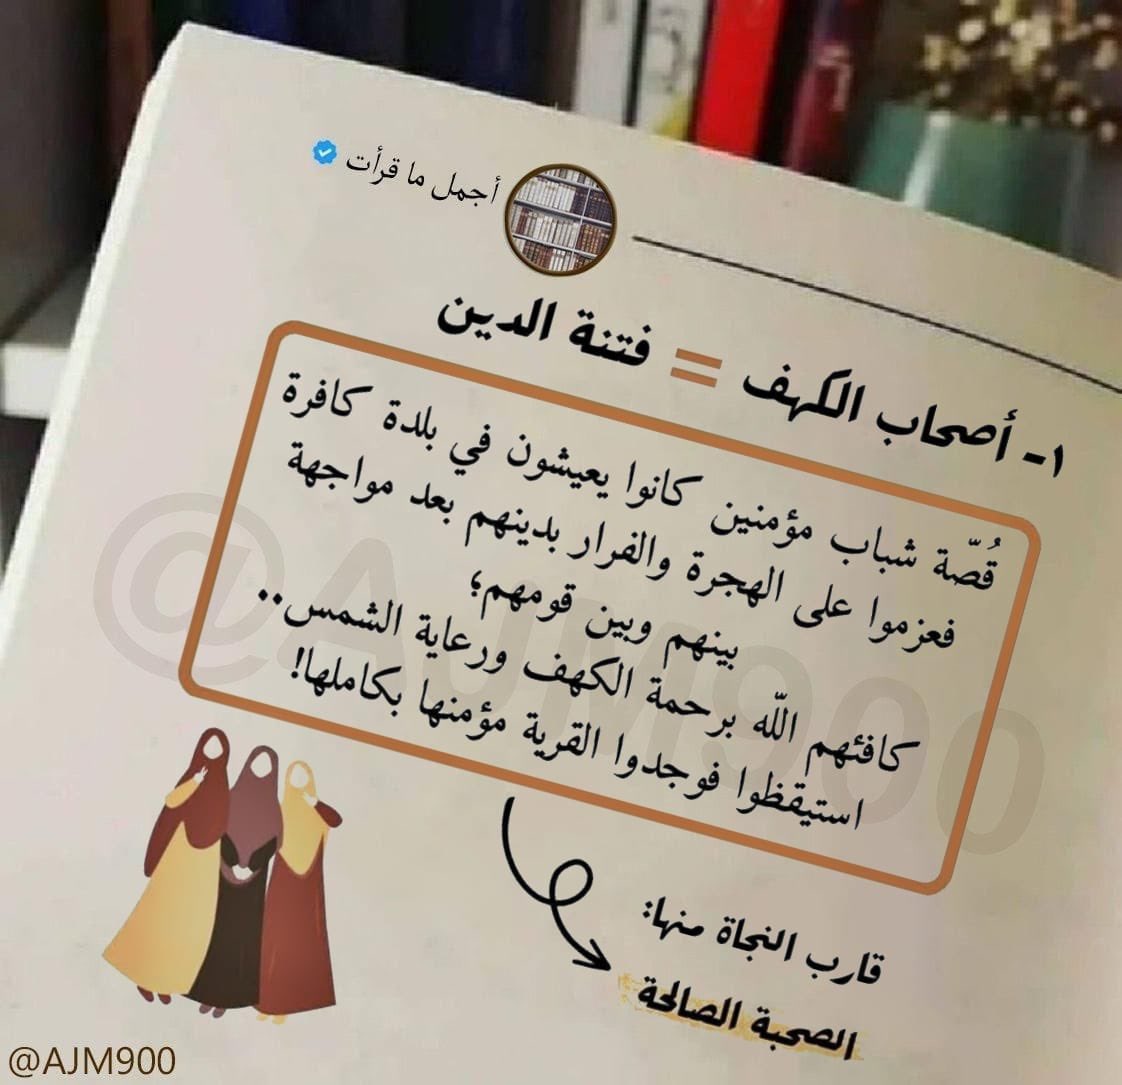 أجمل ما قرأت
١- أصحاب الكهف = فتنة الدين
قُصّة شباب مؤمنين كانوا يعيشون في بلدة كافرة
فعزموا على الهجرة والفرار بدينهم بعد مواجهة
بينهم وبين قومهم؛
كافئهم اللّه برحمة الكهف ورعاية الشمس..
استيقظوا فوجدوا القرية مؤمنها بكاملها!
قارب النجاة منها:
الصحبة الصالحة
@AJM900
@AJM900